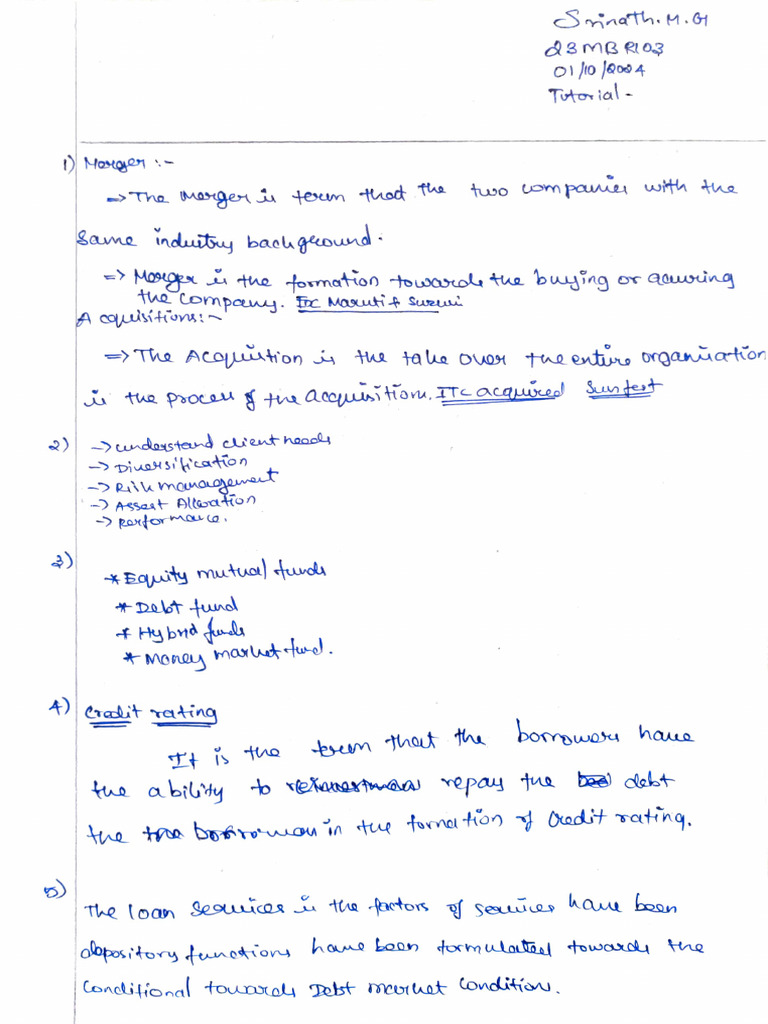 Srinath. M. G
23MBR103
01/10/2024
Tutorial -
1) Merger :-
=> The Merger is term that the two companies with the
same industry background.
=> Merger is the formation towards the buying or acuuring
the company. Ex Maruti & Suzui
Acquisitions:-
=> The Acquistion is the take over the entire organisation
is the process of the acquisition. ITC acquired Sunfest
2) -> understand client needs
-> Diversification
-> Risk management
-> Assert Allocation
-> performance.
3)
* Equity mutual funds
* Debt fund
* Hybrid funds
* Money market fund.
4) Credit rating
It is the term that the borrowers have
the ability to repay the debt
the in the formation of Credit rating.
5)
The loan services is the factors of services have been
depository functions have been formulated towards the
conditional towards Debt market condition.